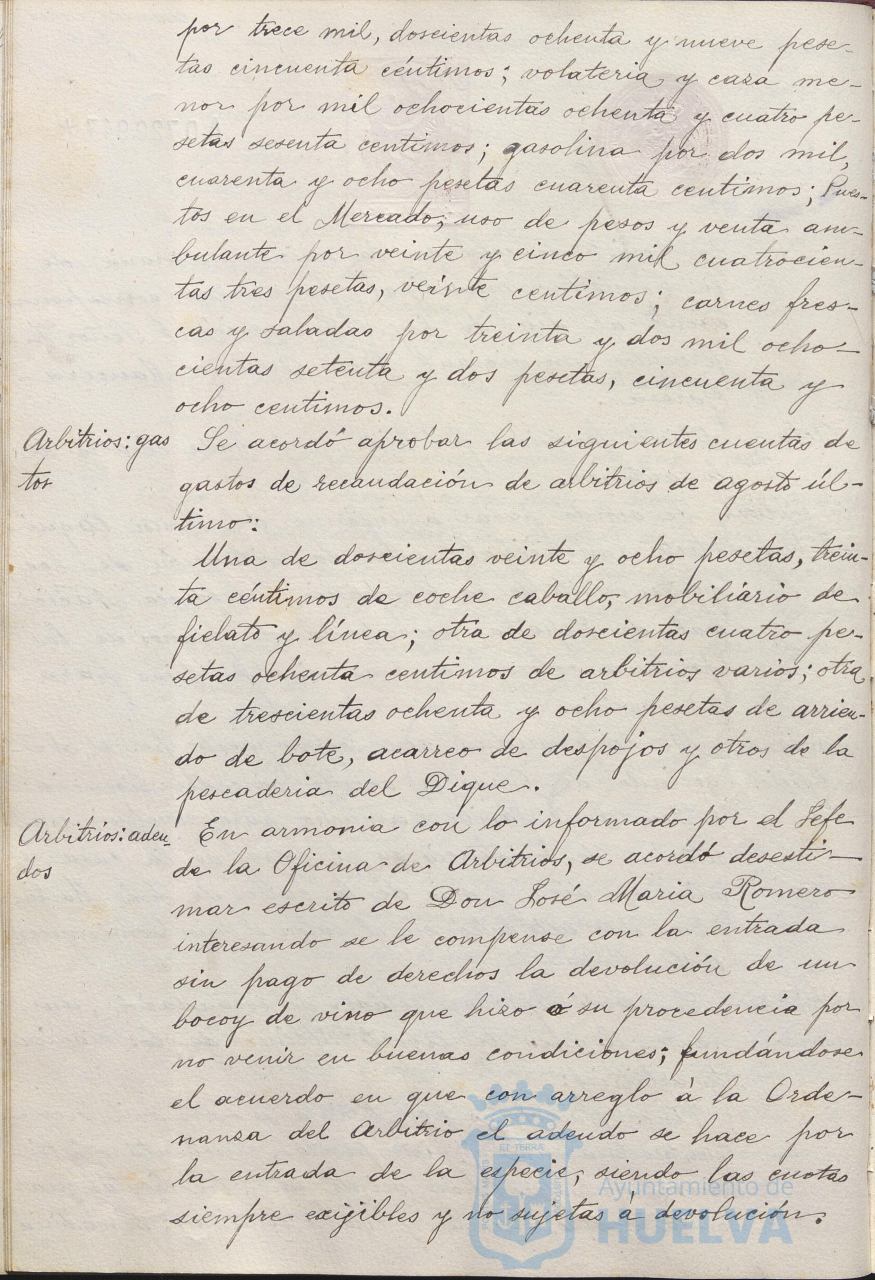 por trece mil, doscientas ochenta y nueve pese-
tas cincuenta céntimos; volateria y caza me-
nor por mil ochocientas ochenta y cuatro pe-
setas sesenta centimos; gasolina por dos mil,
cuarenta y ocho pesetas cuarenta centimos; Pues-
tos en el Mercado; uso de pesos y venta am-
bulante por veinte y cinco mil cuatrocien-
tas tres pesetas, veinte centimos; carnes fres-
cas y saladas por treinta y dos mil ocho-
cientas setenta y dos pesetas, cincuenta y
ocho centimos.
Arbitrios: gas
tos
Se acordó aprobar las siguientes cuentas de
gastos de recaudación de arbitrios de agosto úl-
timo:
Una de doscientas veinte y ocho pesetas, trein-
ta céntimos de coche caballo, mobiliario de
fielato y línea; otra de doscientas cuatro pe-
setas ochenta centimos de arbitrios varios; otra
de trescientas ochenta y ocho pesetas de arrien-
do de bote, acarreo de despojos y otros de la
pescaderia del Dique.
Arbitrios: adeu-
dos
En armonia con lo informado por el Jefe
de la Oficina de Arbitrios, se acordó desesti-
mar escrito de Don José Maria Romero
interesando se le compense con la entrada
sin pago de derechos la devolución de un
bocoy de vino que hizo á su procedencia por
no venir en buenas condiciones; fundándose
el acuerdo en que con arreglo à la Orde-
nanza del Arbitrio el adeudo se hace por
la entrada de la especie, siendo las cuotas
siempre exijibles y no sujetas à devolución.
Ayuntamiento de
HUELVA